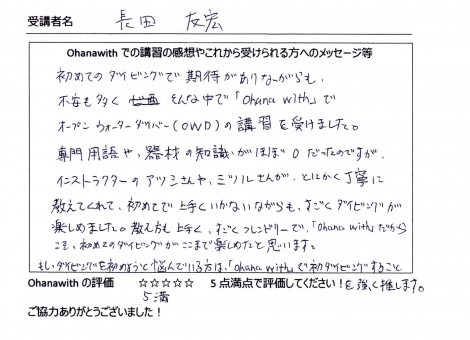 受講者名 長田 友宏
Ohanawith での講習の感想やこれから受けられる方へのメッセージ等
初めてのダイビングで期待がありながらも、
不安も多く そんな中で「Ohana with」で
オープンウォーターダイバー(OWD)の講習を受けました。
専門用語や、器材の知識がほぼ0だったのですが、
インストラクターのアツシさんや、ミツルさんが、とにかく丁寧に
教えてくれて、初めてで上手くいかないながらも、すごくダイビングが
楽しめました。教え方も上手く、すごくフレンドリーで、「Ohana with」だから
こそ、初めてのダイビングがここまで楽しめたと思います。
もし、ダイビングを始めようと悩んでいる方は、「Ohana with」で初ダイビングすること
を強く推します。
Ohanawith の評価 ☆☆☆☆☆ 5点満点で評価してください!
5満
ご協力ありがとうございました!